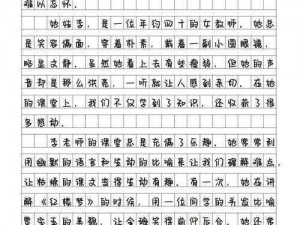 难以忘怀。
她姓李，是一位年约四十的女教师。她总
是笑容满面，穿着朴素，戴着一副小圆眼镜，
略显文静。虽然她看上去有些瘦弱，但她的声
音却是那么洪亮，一听就让人感到亲切。在她
的课堂上，我们不仅学到了知识，还收获了很
多感动。
李老师的课堂总是充满了乐趣。她常常利
用幽默的语言和生动的比喻来让我们理解难点，
让枯燥的课文变得生动有趣。有一次，她在讲
解《红楼梦》的时候，用一位同学的头发比喻
贾宝玉的美貌，让全班笑得前仰后合。她还常